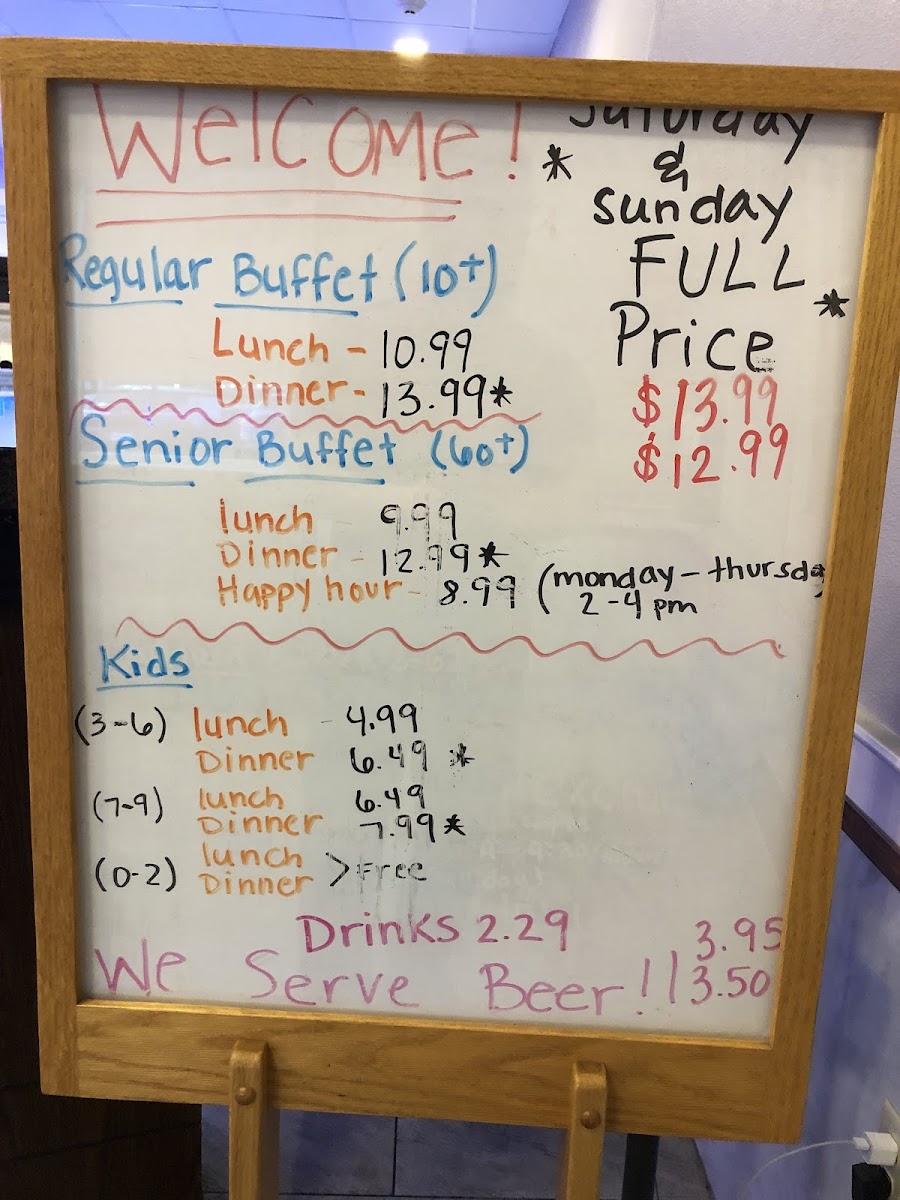 Welcome!
Saturday
* &
Sunday
FULL
Price *
$13.99
$12.99
Regular Buffet (10+)
Lunch - 10.99
Dinner - 13.99*
Senior Buffet (60+)
lunch 9.99
Dinner - 12.99*
Happy hour - 8.99 (monday - thursday
2-4 pm
Kids
(3-6) lunch - 4.99
Dinner 6.49 *
(7-9) lunch 6.49
Dinner 7.99*
(0-2) lunch
Dinner > Free
Drinks 2.29
We Serve Beer!!
3.95
3.50